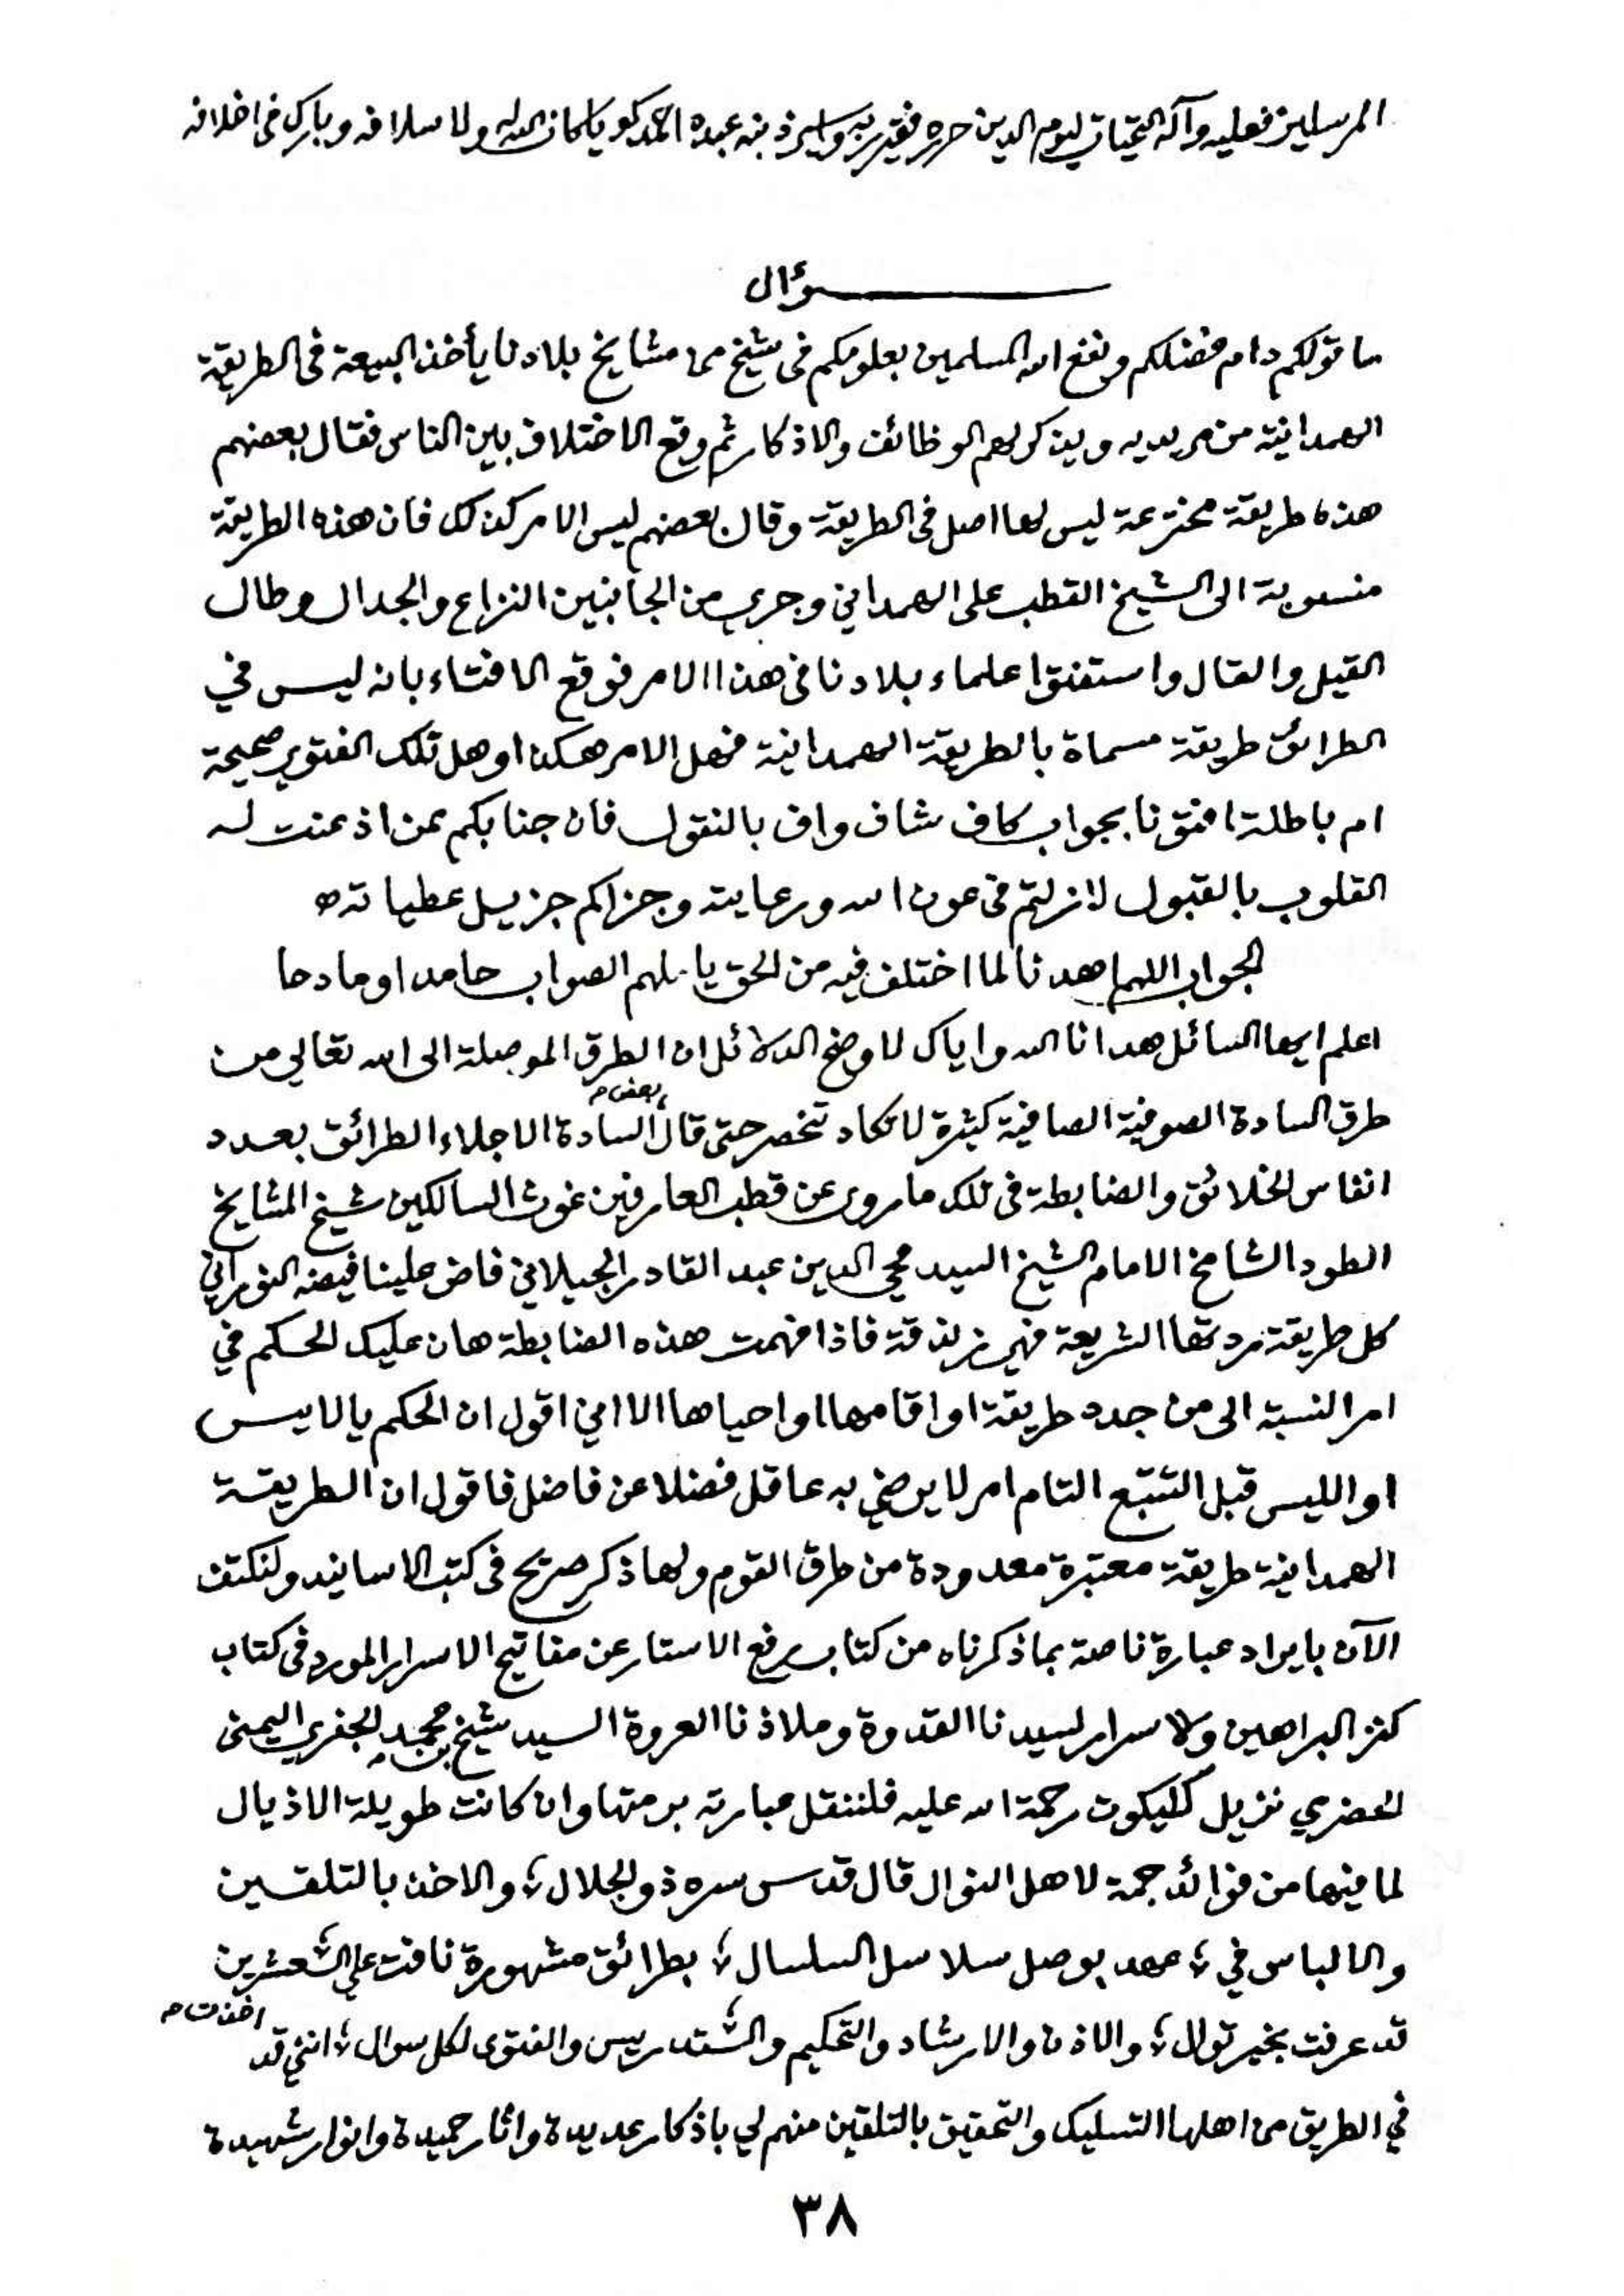 المرسلين فعليه وآله التحيات ليوم الدين حرره فقير ربه واسير ذنبه عبده احمد كويا كان الله له ولاسلافه وبارك في اخلافه
سؤال
ما قولكم دام فضلكم ونفع الله المسلمين بعلومكم في شيخ من مشايخ بلادنا يأخذ البيعة في الطريقة
الهمدانية من مريديه ويذكر لهم الوظائف والاذكار ثم وقع الاختلاف بين الناس فقال بعضهم
هذه طريقة مخترعة ليس لها اصل في الطريقة وقال بعضهم ليس الامر كذلك فان هذه الطريقة
منسوبة الى الشيخ القطب على الهمداني وجرى من الجانبين النزاع والجدال وطال
القيل والقال واستفتوا علماء بلادنا في هذا الامر فوقع الافتاء بانه ليس في
الطرائق طريقة مسماة بالطريقة الهمدانية فهل الامر هكذا وهل تلك الفتوى صحيحة
ام باطلة افتونا بجواب كاف شاف واف بالنقول فان جنابكم ممن اذعنت له
القلوب بالقبول لازلتم في عون الله ورعايته وجزاكم جزيل عطياته
الجواب اللهم اهدنا لما اختلف فيه من الحق يا ملهم الصواب حامدا ومادحا
اعلم ايها السائل هدانا الله واياك لاوضح الدلائل ان الطرق الموصلة الى الله تعالى من
طرق السادة الصوفية الصافية كثيرة لا تكاد تنحصر حتى قال بعض السادة الاجلاء الطرائق بعدد
انفاس الخلائق والضابطة في تلك ما روى عن قطب العارفين غوث السالكين شيخ المشايخ
الطود الشامخ الامام الشيخ السيد محي الدين عبد القادر الجيلاني فاض علينا فيضه النوراني
كل طريقة ردتها الشريعة فهي زندقة فاذا فهمت هذه الضابطة هان عليك الحكم في
امر النسبة الى من جدد طريقة او اقامها او احياها الا اني اقول ان الحكم بالايس
او الليس قبل التتبع التام امر لا يرضي به عاقل فضلا عن فاضل فاقول ان الطريقة
الهمدانية طريقة معتبرة معدودة من طرق القوم ولها ذكر صريح في كتب الاسانيد ولنكتف
الآن بايراد عبارة ناصة بما ذكرناه من كتاب رفع الاستار عن مفاتيح الاسرار المورد في كتاب
كنز البراهين والاسرار لسيدنا القدوة وملاذنا العروة السيد شيخ بن محمد الجفري اليمنى
الحضرمي نزيل كليكوت رحمة الله عليه فلننقل عبارته برمتها وان كانت طويلة الاذيال
لما فيها من فوائد جمة لاهل النوال قال قدس سره ذو الجلال ؛ والاخذ بالتلقين
والالباس في ؛ عهد بوصل سلاسل السلسال ؛ بطرائق مشهورة نافت على ؛ العشرين
قد عرفت بخير توال ؛ والاذن والارشاد والتحكيم والتدريس والفتوى لكل سوال ؛ انني قد اخذت
في الطريق من اهلها التسليك والتحقيق بالتلقين منهم لي باذكار عديدة واثار حميدة وانوار شهيدة
٣٨